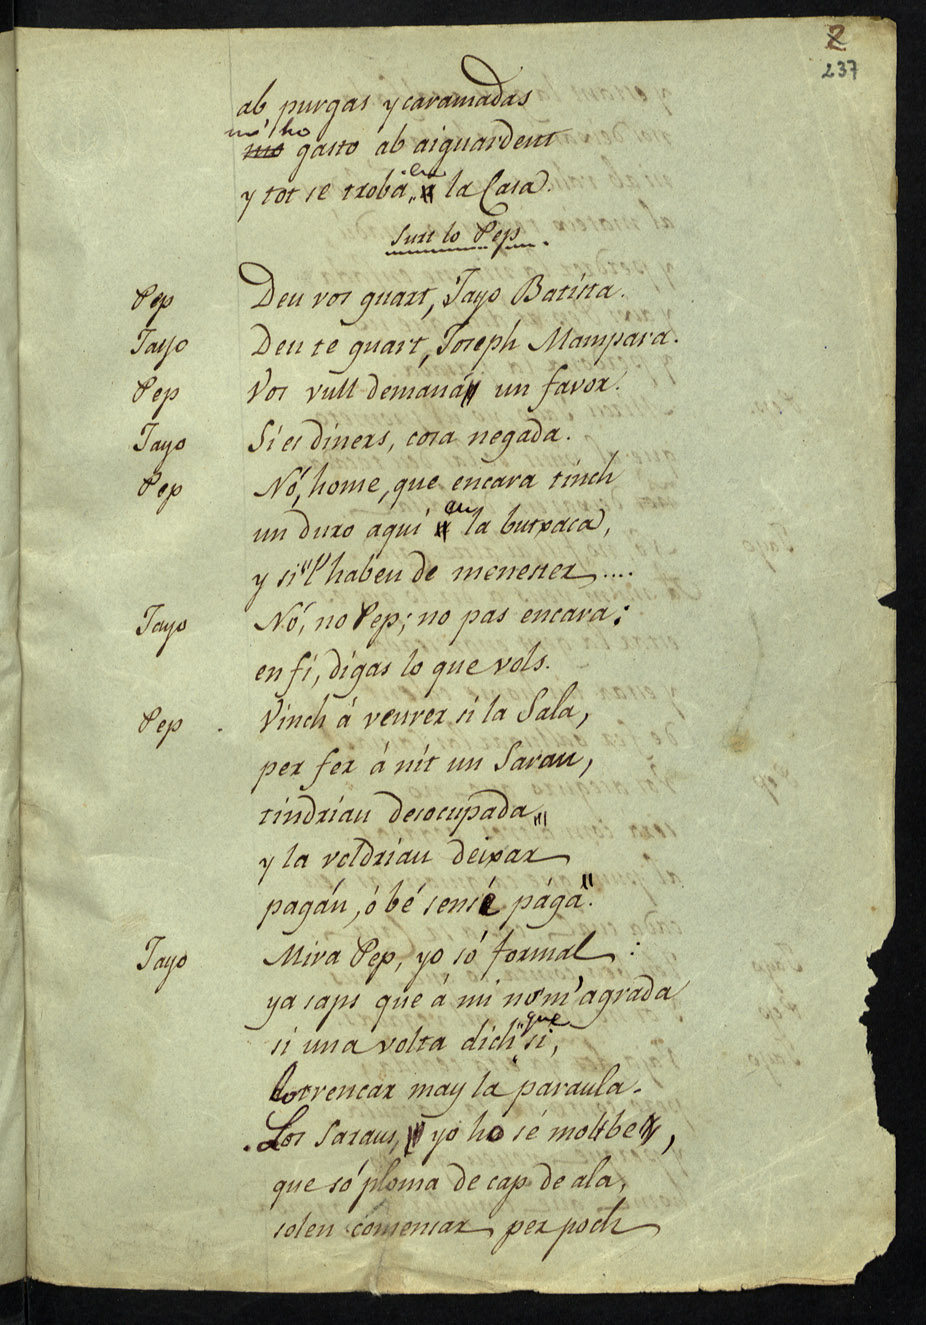 2
237
ab purgas y caramadas
m'ho gasto ab aiguardent
y tot se trobá en la Casa.
Surt lo Pep.
Pep Deu vos guart, Tayo Batista.
Tayo Deu te guart, Joseph Mampara.
Pep Vos vull demaná un favor.
Tayo Si es diners, cosa negada.
Pep Nó, home, que encara tinch
un duro aquí en la butxaca,
y si l' habeu de menester ....
Tayo Nó, no Pep; no pas encara:
en fi, digas lo que vols.
Pep Vinch á veurer si la Sala,
per fer á nit un Sarau,
tindriau desocupada
y la voldriau deixar
pagán, ó bé sense págá.
Tayo Mira Pep, yo só formal:
ya saps que á mi no m' agrada
si una volta dich que si,
lo trencar may la paraula.
Los Saraus, yo ho sé molt be,
que só ploma de cap de ala,
solen comensar per poch